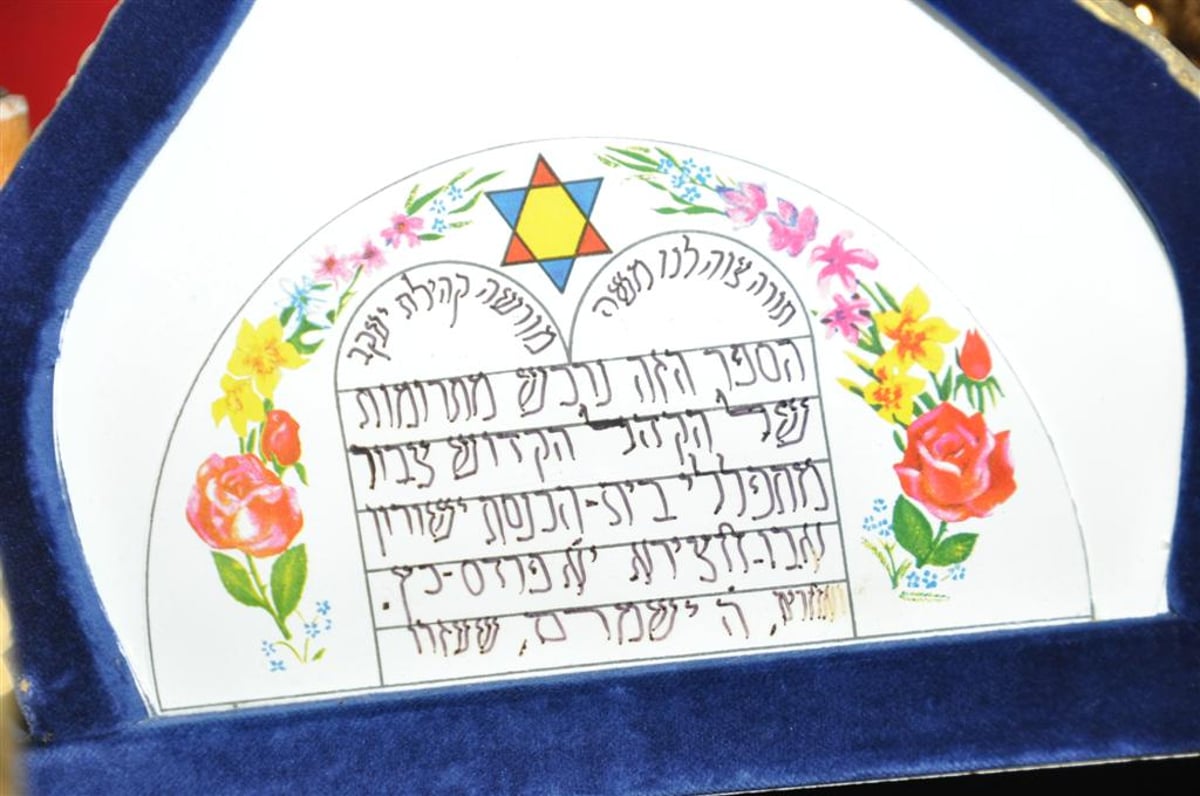 תורה צוה לנו משה
מורשה קהילת יעקב
הספר הזה נרכש מתרומות
של הקהל הקדוש צבור
מתפללי בית-הכנסת ישורון
פרדס-כץ.
ה' ישמרם, שעזרו